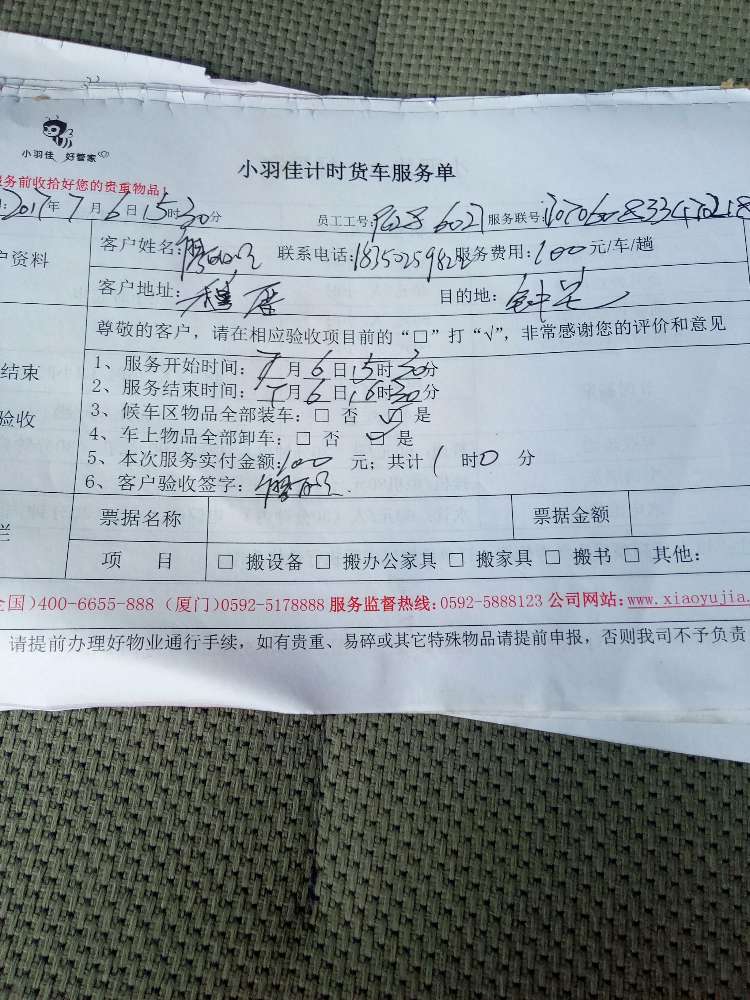 小羽佳 好管家
小羽佳计时货车服务单
务前收拾好您的贵重物品!
2017年7月6日15时30分 员工工号: 服务联号:
户资料 客户姓名: 联系电话: 服务费用:100元/车/趟
客户地址: 目的地:
尊敬的客户，请在相应验收项目前的“□”打“√”，非常感谢您的评价和意见
结束
验收
1、服务开始时间:7月6日15时30分
2、服务结束时间:7月6日16时30分
3、候车区物品全部装车:□ 否 ☑ 是
4、车上物品全部卸车:□ 否 ☑ 是
5、本次服务实付金额:100 元; 共计1时0分
6、客户验收签字:
栏 票据名称 票据金额
项 目 □ 搬设备 □ 搬办公家具 □ 搬家具 □ 搬书 □ 其他:
全国)400-6655-888 (厦门)0592-5178888 服务监督热线:0592-5888123 公司网站:www.xiaoyujia.
请提前办理好物业通行手续，如有贵重、易碎或其它特殊物品请提前申报，否则我司不予负责